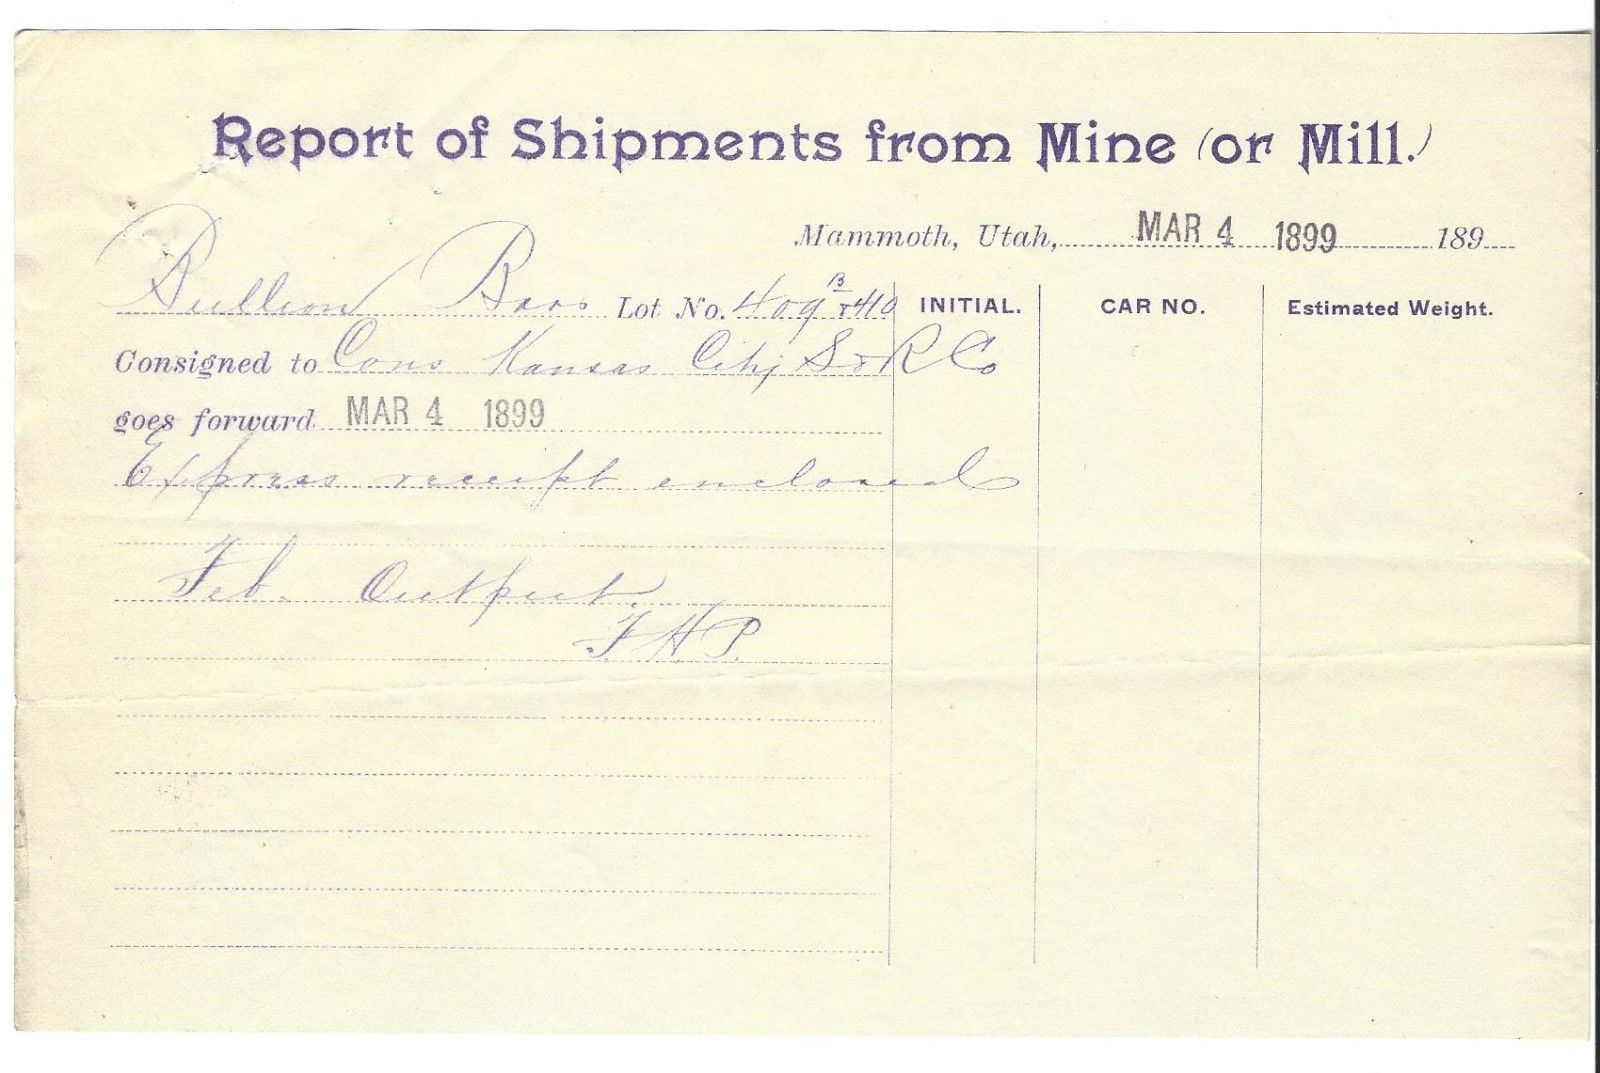 Report of Shipments from Mine (or Mill.)
Mammoth, Utah, MAR 4 1899 189
Bullion Bars Lot No. 409 B & 410 INITIAL. CAR NO. Estimated Weight.
Consigned to Cons Kansas City S & R Co
goes forward MAR 4 1899
Express receipt enclosed
Feb. Output.
F.H.P.